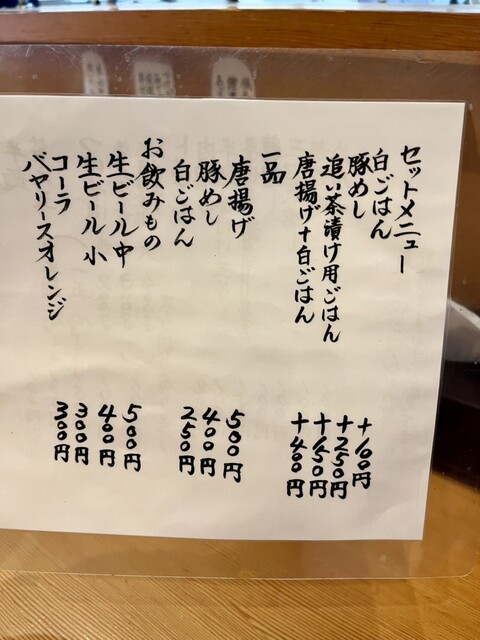 セットメニュー
白ごはん +100円
豚めし +250円
追い茶漬け用ごはん +150円
唐揚げ+白ごはん +400円
一品
唐揚げ 500円
豚めし 400円
白ごはん 250円
お飲みもの
生ビール中 500円
生ビール 小 400円
コーラ 300円
バヤリースオレンジ 300円